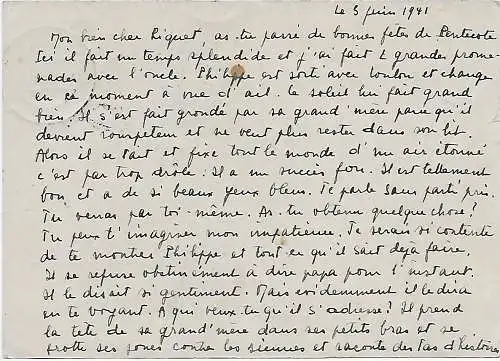 Le 3 juin 1941
Mon bien cher Riquet, as-tu passé de bonnes fêtes de Pentecôte
Ici il fait un temps splendide et j'ai fait 2 grandes prome-
nades avec l'oncle. Philippe est sorti avec et change
en ce moment à vue d'œil. Le soleil lui fait grand
bien. Il s'est fait grondé par sa grand'mère parce qu'il
devient rouspeteur et ne veut plus rester dans son lit.
Alors il se tait et fixe tout le monde d'un air étonné
c'est par trop drôle. Il a un succès fou. Il est tellement
bon et a de si beaux yeux bleus. Je parle sans parti pris.
Tu verras par toi-même. As-tu obtenu quelque chose?
Tu peux t'imaginer mon impatience. Je serais si contente
de te montrer Philippe et tout ce qu'il sait déjà faire.
Il se refuse obstinément à dire papa pour l'instant.
Il le disait si gentiment. Mais évidemment il le dira
en te voyant. A qui veux-tu qu'il s'adresse? Il prend
la tête de sa grand'mère dans ses petits bras et se
frotte ses joues contre les siennes et raconte des tas d'histoires